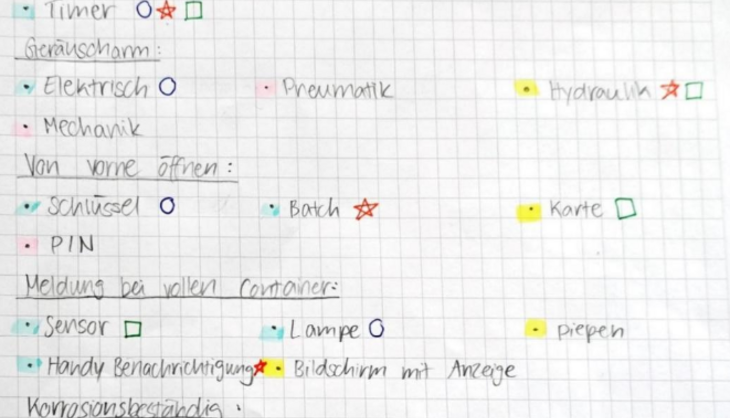 • Timer
Geräuscharm:
• Elektrisch • Pneumatik • Hydraulik
• Mechanik
Von vorne öffnen:
• Schlüssel • Batch • Karte
• PIN
Meldung bei vollen Container:
• Sensor • Lampe • piepen
• Handy Benachrichtigung • Bildschirm mit Anzeige
Korrosionsbeständig: